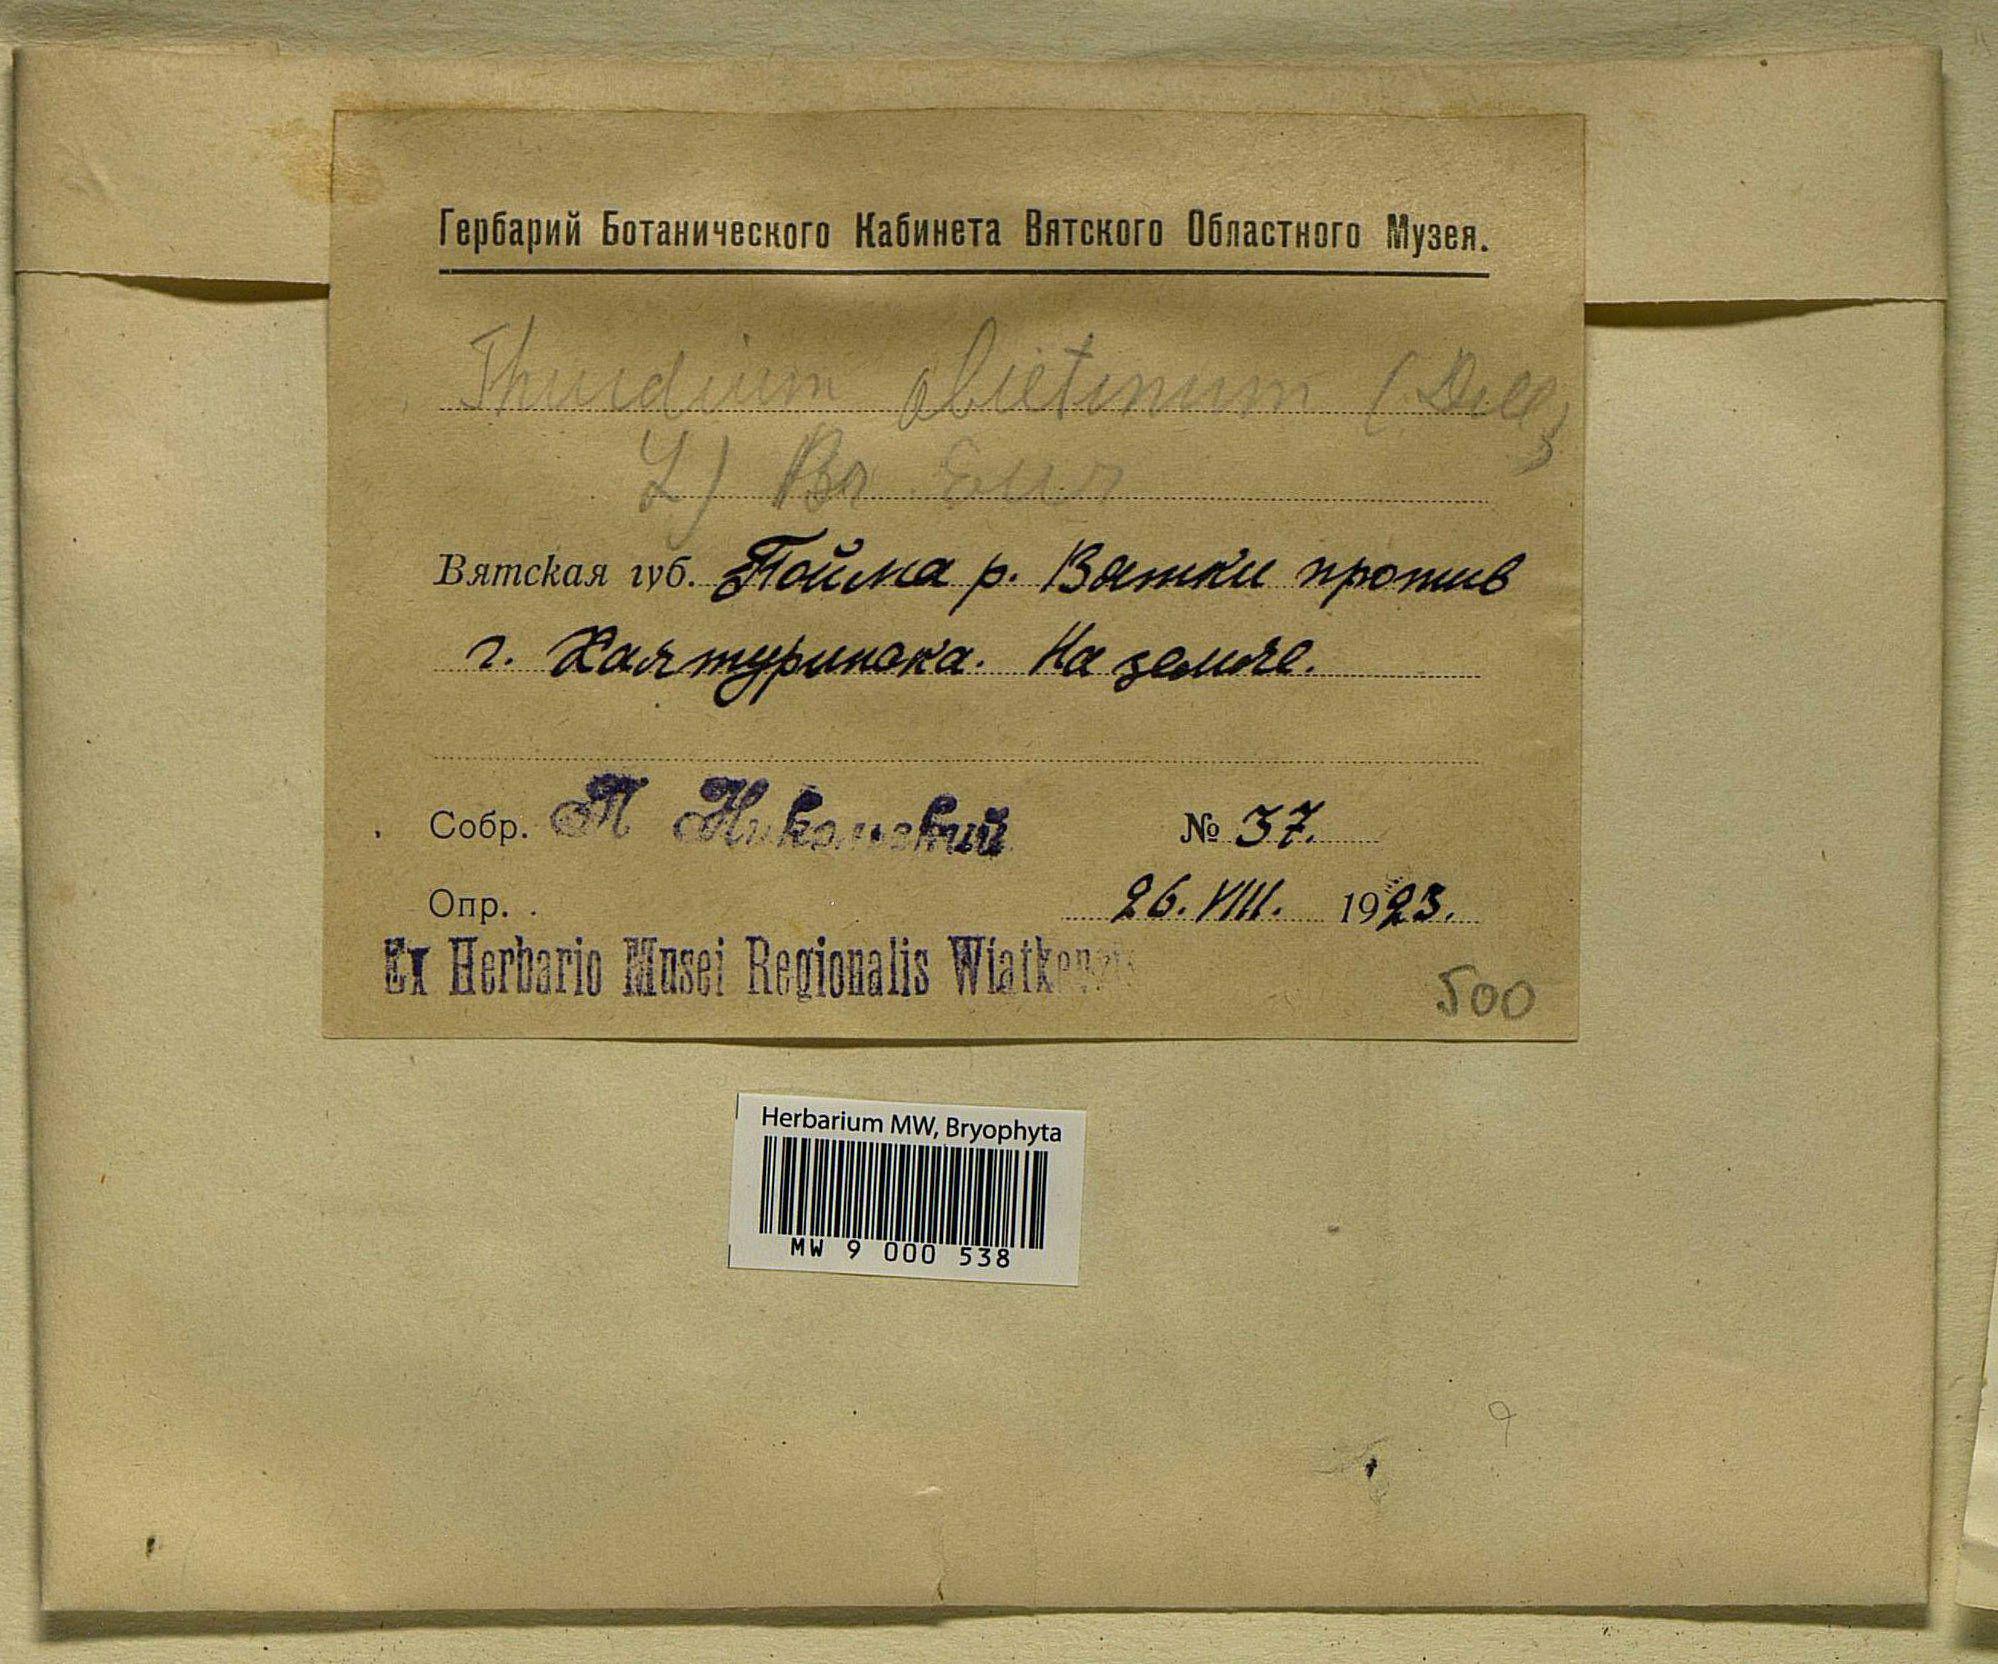 Гербарий Ботанического Кабинета Вятского Областного Музея.
Thuidium abietinum (Dill,
L) Br. Eur
Вятская губ. Пойма р. Вятки против
г. Халтуринска. На земле.
Собр. П Никольский № 37.
Опр. 26.VIII. 1923.
Ex Herbario Musei Regionalis Wiatkensis
500
Herbarium MW, Bryophyta
MW 9 000 538